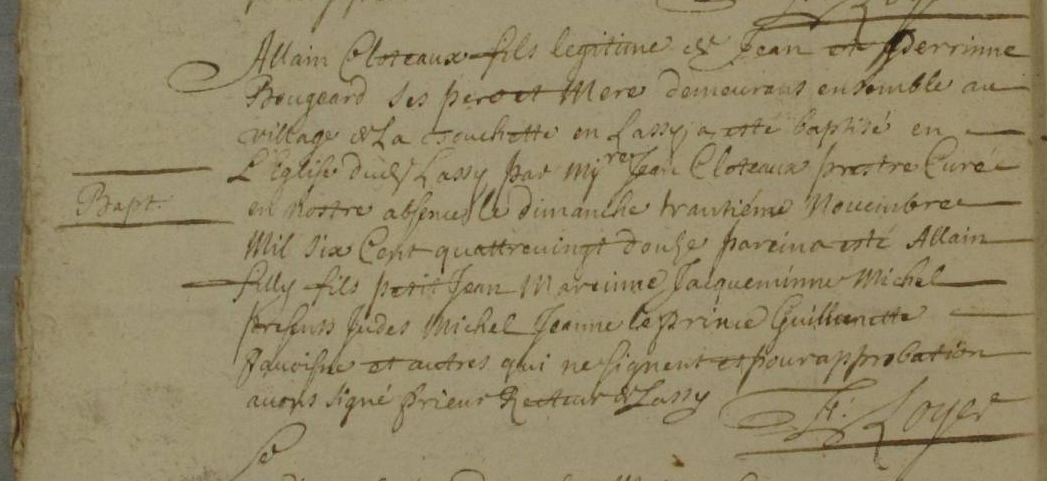 Allain Cloteaux fils legitime de Jean et Perrinne
Bougeard ses pere et Mere demeurans ensemble au
village de La en Lassy a esté baptisé en
L'Eglise dud Lassy par Mre Jean Cloteaux prestre Curé
Bapt.
en nostre absence le dimanche trantiéme Novembre
Mil Six Cent quattrevingt douze parein a esté Allain
filly fils petit Jean Mareinne Jacqueminne Michel
presens Judes Michel Jeanne le prince Guillemette
et autres qui ne signent et pour approbation
avons signé prieur Recteur de Lassy
Loyer